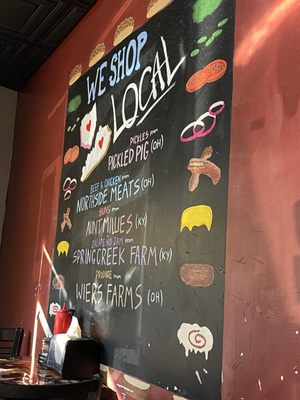 WE SHOP
LOCAL
PICKLES from
PICKLED PIG (OH)
BEEF & CHICKEN from
NORTHSIDE MEATS (OH)
BUNS from
AUNT MILLIES (KY)
JALAPENO JAM from
SPRING CREEK FARM (KY)
PRODUCE from
WIERS FARMS (OH)